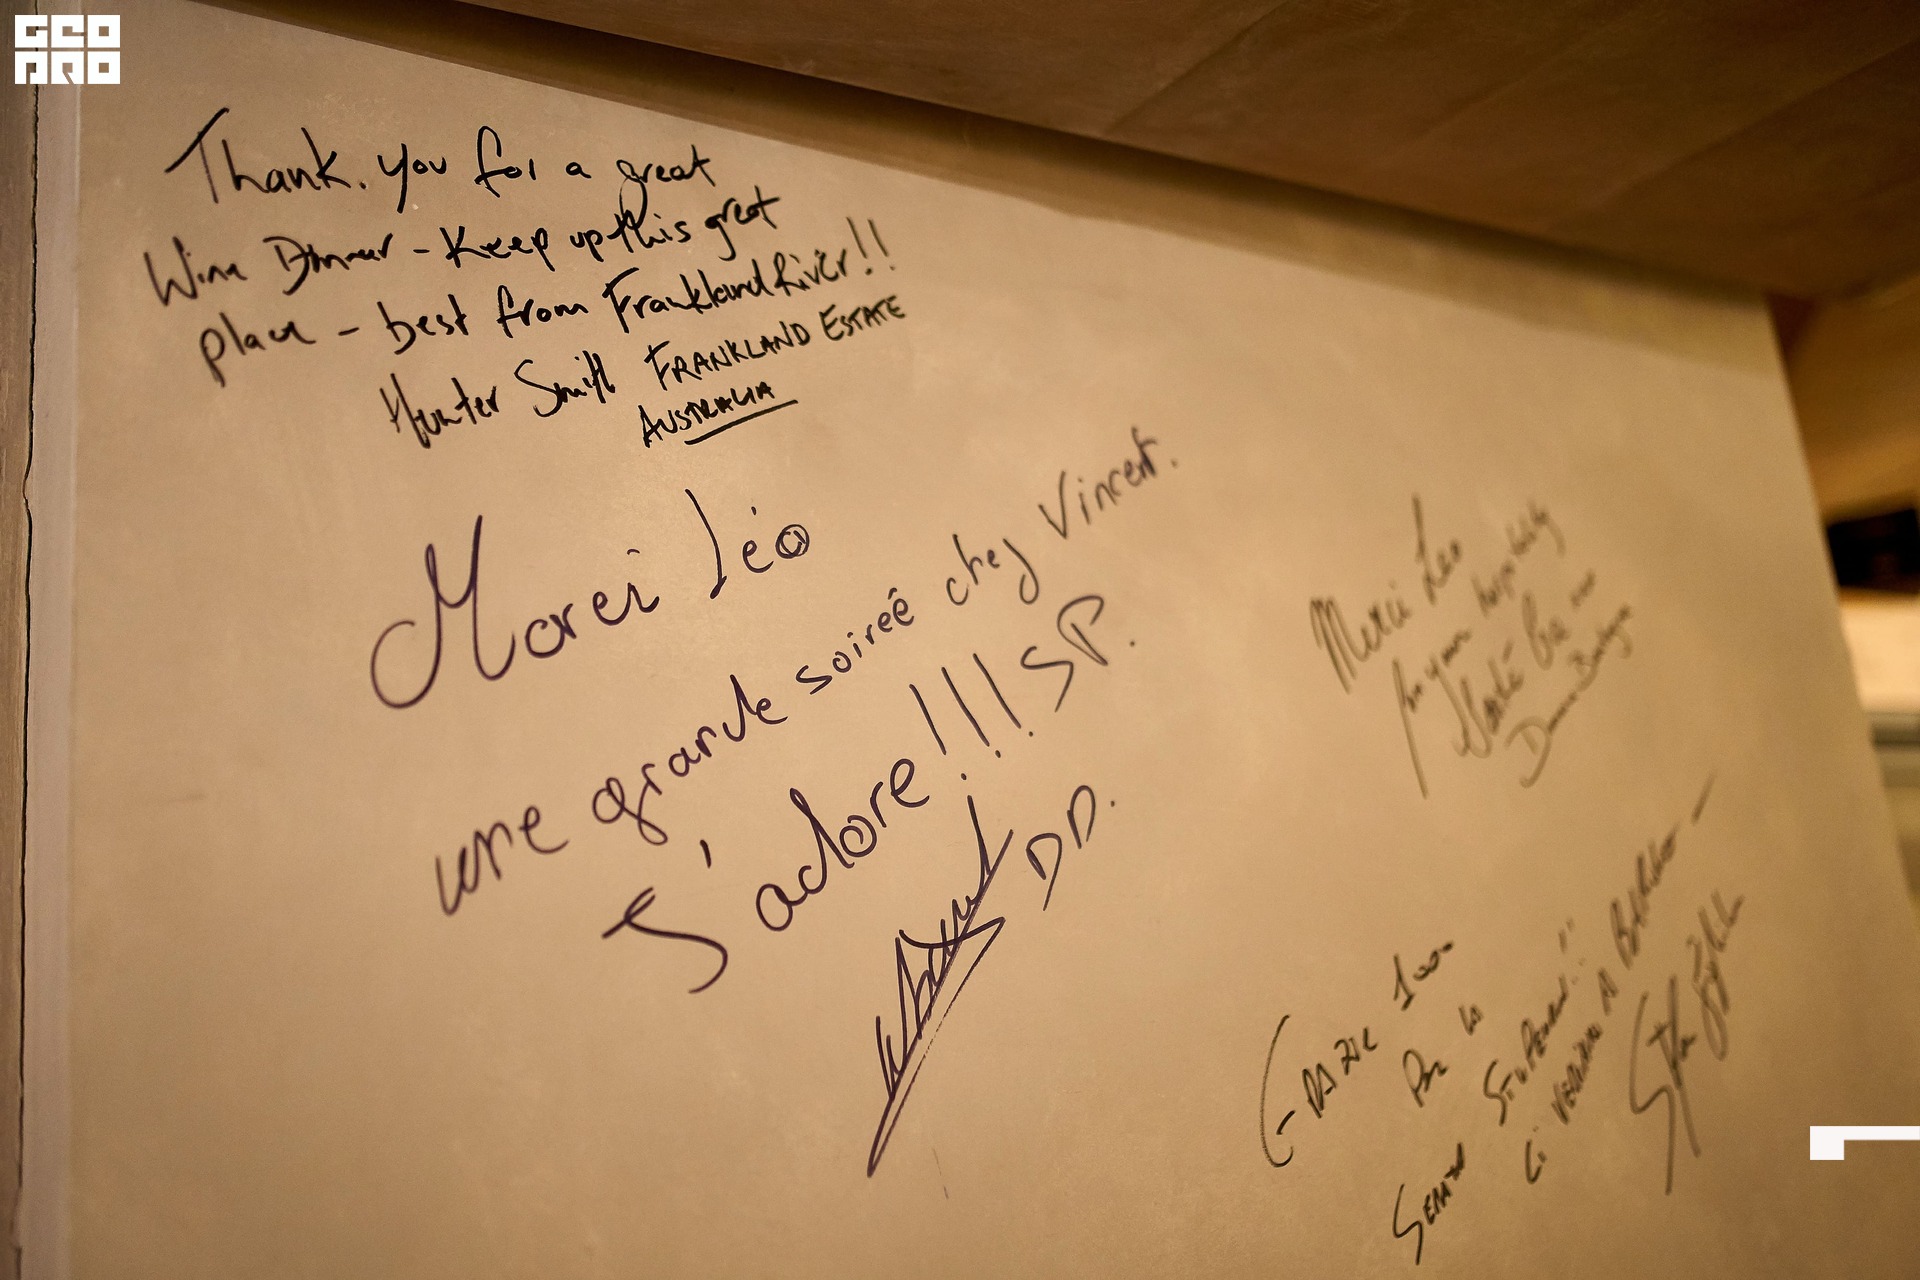 GEO
PRO
Thank. you for a great
Wine Dinner - Keep up this great
place - best from Frankland River!!
Hunter Smith FRANKLAND ESTATE
AUSTRALIA
Merci Léo
une grande soireé chez Vincent.
J'adore!!! SP.
DD.
Merci Leo
for your hospitality
GRAZIE 1000
PER LA
SERATA STUPENDA!!
CI VEDIAMO A